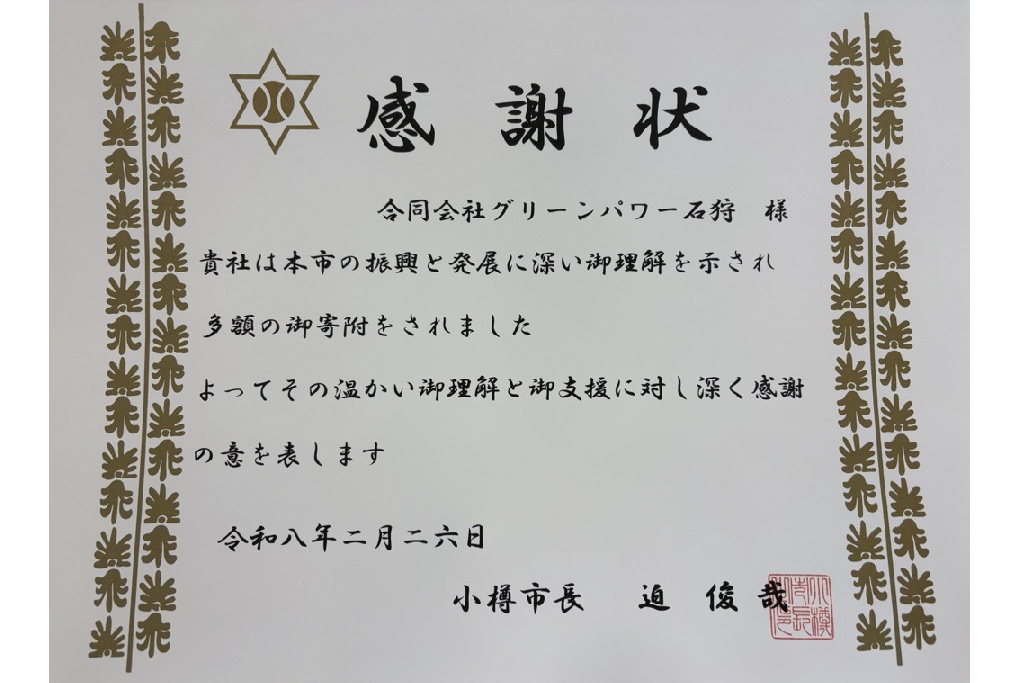 感謝状
合同会社グリーンパワー石狩 様
貴社は本市の振興と発展に深い御理解を示され
多額の御寄附をされました
よってその温かい御理解と御支援に対し深く感謝
の意を表します
令和八年二月二六日
小樽市長 迫 俊哉